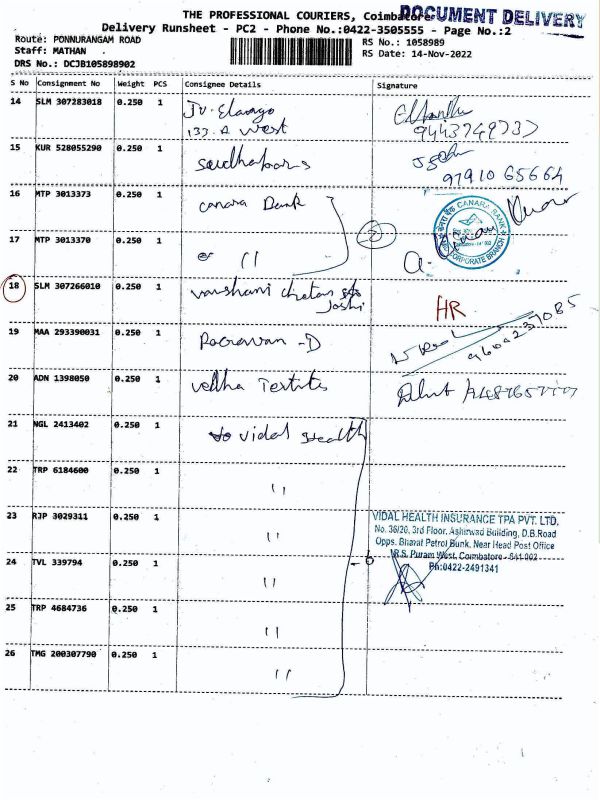 THE PROFESSIONAL COURIERS, Coimbatore
DOCUMENT DELIVERY
Delivery Runsheet - PC2 - Phone No.:0422-3505555 - Page No.:2
Route: PONNURANGAM ROAD
RS No.: 1058989
Staff: MATHAN
RS Date: 14-Nov-2022
DRS No.: DCJB105898902
S No Consignment No Weight PCS Consignee Details Signature
14 SLM 307283018 0.250 1 Jv. Elango
133. A West
9443749737
15 KUR 528055290 0.250 1
97910 65664
16 MTP 3013373 0.250 1 Canara Bank
CANARA BANK
CORPORATE BRANCH
17 MTP 3013370 0.250 1 " 
18 SLM 307266010 0.250 1 varshani chetan
Joshi
HR
19 MAA 293390031 0.250 1 -D
9604237085
20 ADN 1398050 0.250 1
21 NGL 2413402 0.250 1 vidal Health
22 TRP 6184600 0.250 1 "
23 RJP 3029311 0.250 1 "
VIDAL HEALTH INSURANCE TPA PVT. LTD.
No. 36/20, 3rd Floor, Ashirwad Building, D.B.Road
Opps. Bharat Petrol Bunk, Near Head Post Office
R.S. Puram West, Coimbatore - 641 002
Ph:0422-2491341
24 TVL 339794 0.250 1 " - 6
25 TRP 4684736 0.250 1 "
26 TMG 200307790 0.250 1 "